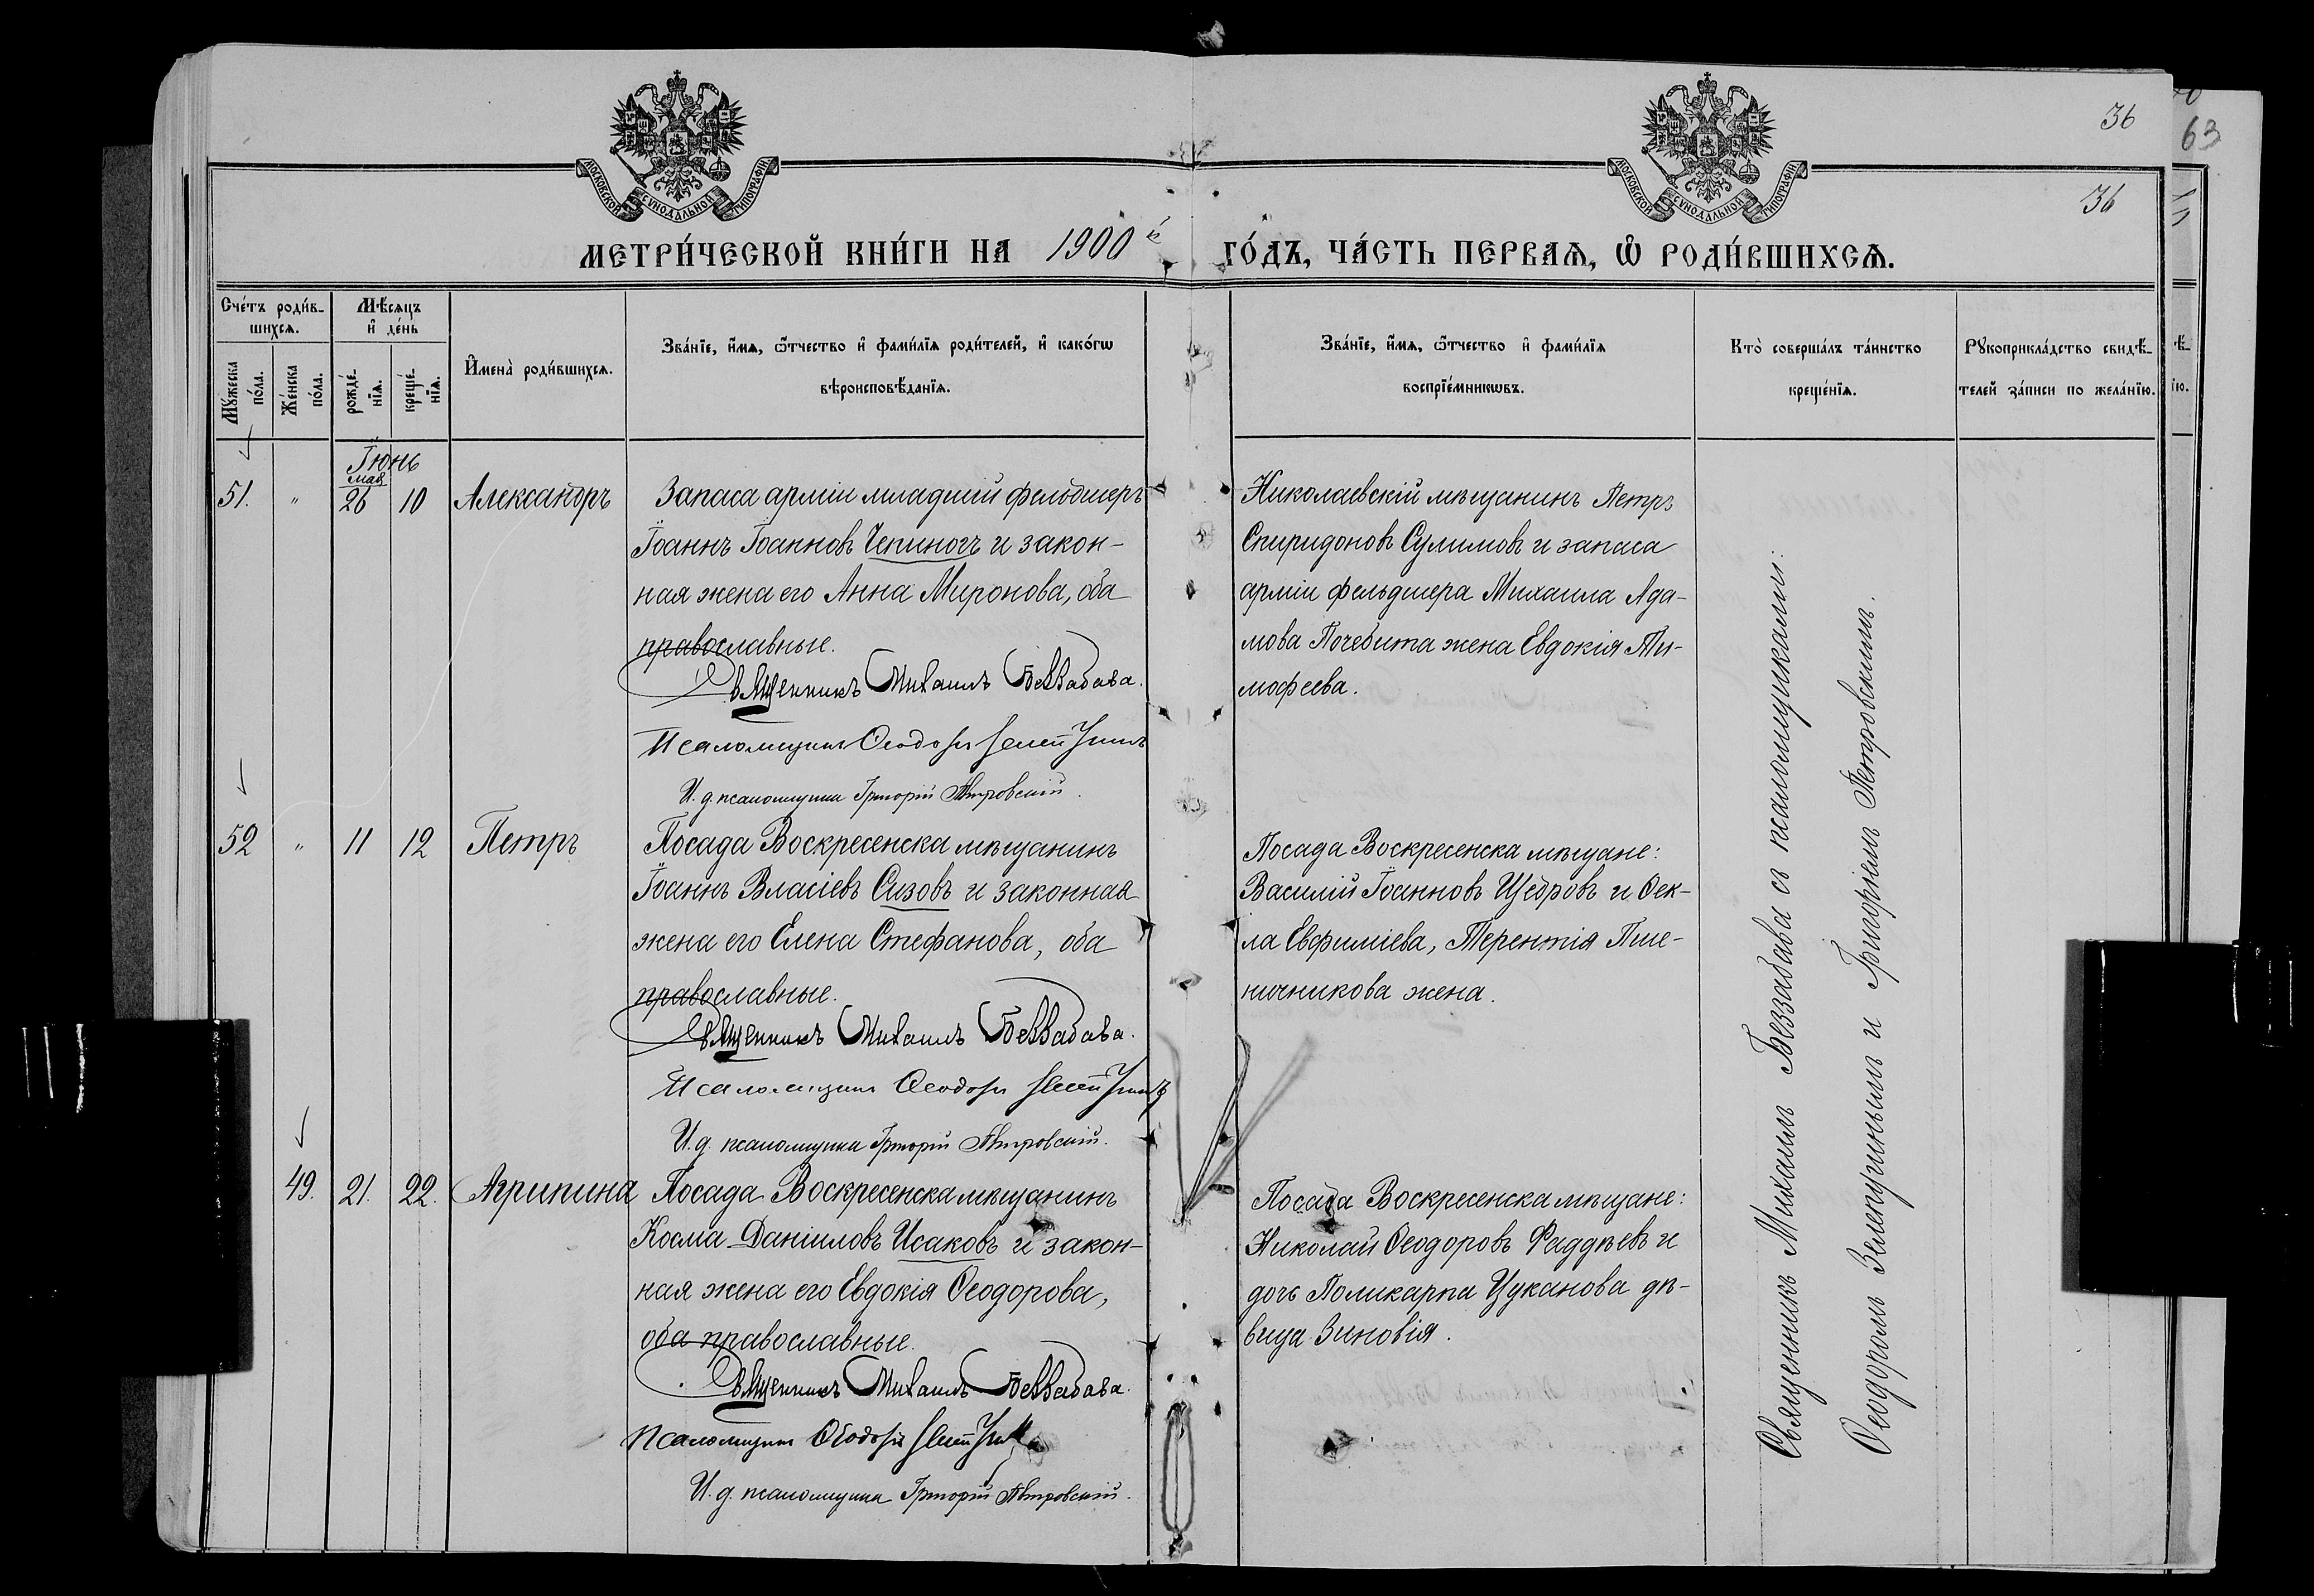 36
63
36
МОСКОВСКОЙ СѴНОДАЛЬНОЙ ТИПОГРАФІИ
МОСКОВСКОЙ СѴНОДАЛЬНОЙ ТИПОГРАФІИ
МЕТРИ́ЧЕСКОЙ КНИ́ГИ НА 1900й ГО́ДЪ, ЧА́СТЬ ПЕРВАѦ, Ѡ҆ РОДИ́ВШИХСѦ.
Сче́тъ роди́в-
шихсѧ.
Мꙋ́жеска
по́ла.
Же́нска
по́ла.
Мѣ́сѧцъ
и҆ де́нь
рожде́-
нїѧ.
креще́-
нїѧ.
И҆мена̀ роди́вшихсѧ.
Зва́нїе, и҆́мѧ, ѻ҆́тчество и҆ фами́лїѧ роди́телей, и҆ како́гѡ
вѣроисповѣ́данїѧ.
Зва́нїе, и҆́мѧ, ѻ҆́тчество и҆ фами́лїѧ
воспрїе́мникѡвъ.
Кто̀ соверша́лъ та́инство
креще́нїѧ.
Рꙋкоприкла́дство свидѣ́-
телей за́писи по жела́нїю.
Іюнь
мая
51. " 26 10 Александръ
Запаса арміи младшій фельдшеръ
Іоаннъ Іоанновъ Чепиногъ и закон-
ная жена его Анна Миронова, оба
православные.
Священникъ Михаилъ Беззабава.
Псаломщикъ Ѳеодоръ
И. д. псаломщика Григорій Петровскій.
Николаевскій мѣщанинъ Петръ
Спиридоновъ Сулимовъ и запаса
арміи фельдшера Михаила Ада-
мова Почебита жена Евдокія Ти-
мофеева.
52 " 11 12 Петръ
Посада Воскресенска мѣщанинъ
Іоаннъ Власіевъ Сизовъ и законная
жена его Елена Стефанова, оба
православные.
Священникъ Михаилъ Беззабава.
Псаломщикъ Ѳеодоръ
И. д. псаломщика Григорій Петровскій.
Посада Воскресенска мѣщане:
Василій Іоанновъ Щедровъ и Ѳек-
ла Евфиміева, Терентія Пше-
ничникова жена.
49. 21. 22. Агрипина
Посада Воскресенска мѣщанинъ
Косма Даніиловъ Исаковъ и закон-
ная жена его Евдокія Ѳеодорова,
оба православные.
Священникъ Михаилъ Беззабава.
Псаломщикъ Ѳеодоръ
И. д. псаломщика Григорій Петровскій.
Посада Воскресенска мѣщане:
Николай Ѳеодоровъ Фаддѣевъ и
дочь Поликарпа Цуканова дѣ-
вица Зиновія.
Священникъ Михаилъ Беззабава съ псаломщиками:
Ѳеодоромъ и Григоріемъ Петровскимъ.